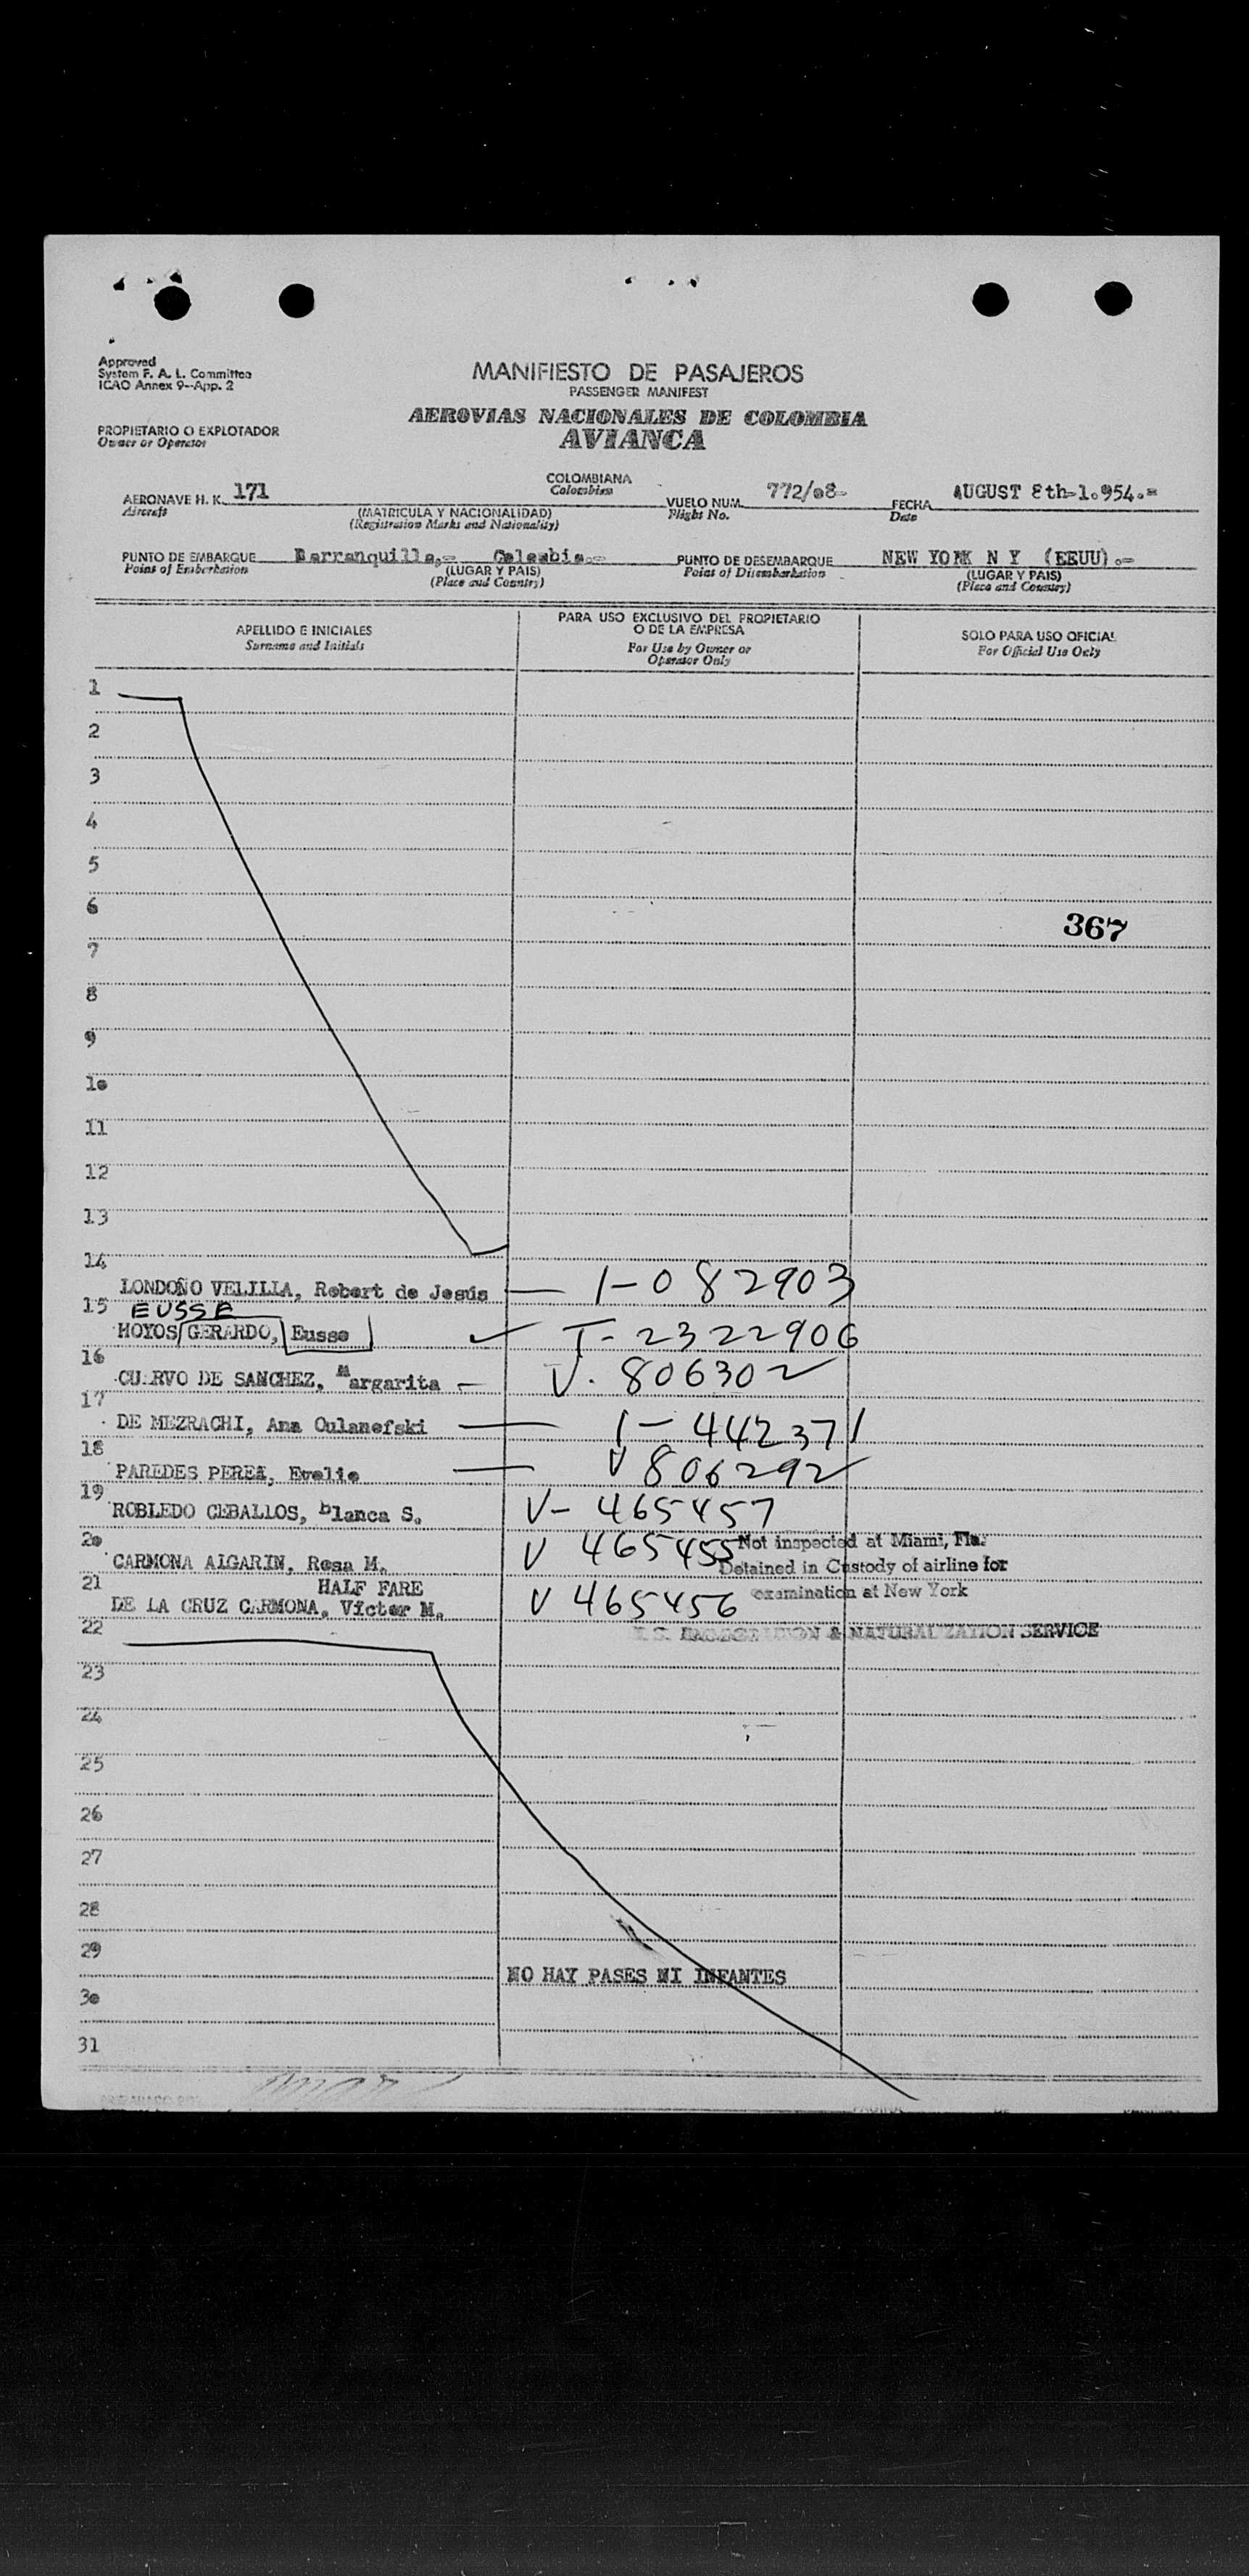 Approved
System F. A. L. Committee
ICAO Annex 9--App. 2
MANIFIESTO DE PASAJEROS
PASSENGER MANIFEST
AEROVIAS NACIONALES DE COLOMBIA
AVIANCA
PROPIETARIO O EXPLOTADOR
Owner or Operator
AERONAVE H. K. 171
Aircraft
COLOMBIANA
Colombian
(MATRICULA Y NACIONALIDAD)
(Registration Marks and Nationality)
VUELO NUM. 772/08-
Flight No.
FECHA AUGUST 8th-1.954.=
Date
PUNTO DE EMBARQUE Barranquilla,= Colombia.=
Point of Embarkation
(LUGAR Y PAIS)
(Place and Country)
PUNTO DE DESEMBARQUE NEW YORK N Y (EEUU).=
Point of Disembarkation
(LUGAR Y PAIS)
(Place and Country)
APELLIDO E INICIALES
Surname and Initials
PARA USO EXCLUSIVO DEL PROPIETARIO
O DE LA EMPRESA
For Use by Owner or
Operator Only
SOLO PARA USO OFICIAL
For Official Use Only
1
2
3
4
5
6
367
7
8
9
10
11
12
13
14
LONDOÑO VELILLA, Robert de Jesús — 1-082903
15 EUSSE
HOYOS GERARDO, Eusse ✓ T-2322906
16
CUERVO DE SANCHEZ, Margarita — V. 806302
17
DE MEZRACHI, Ana Oulanefski — 1-442371
18
PAREDES PEREA, Evelio — V 806292
19
ROBLEDO CEBALLOS, blanca S. V- 465457
20
CARMONA ALGARIN, Rosa M. V 465455
Not inspected at Miami, Fla.
Detained in Custody of airline for
examination at New York
21 HALF FARE
DE LA CRUZ CARMONA, Victor M. V 465456
22
U. S. IMMIGRATION & NATURALIZATION SERVICE
23
24
25
26
27
28
29
NO HAY PASES NI INFANTES
30
31